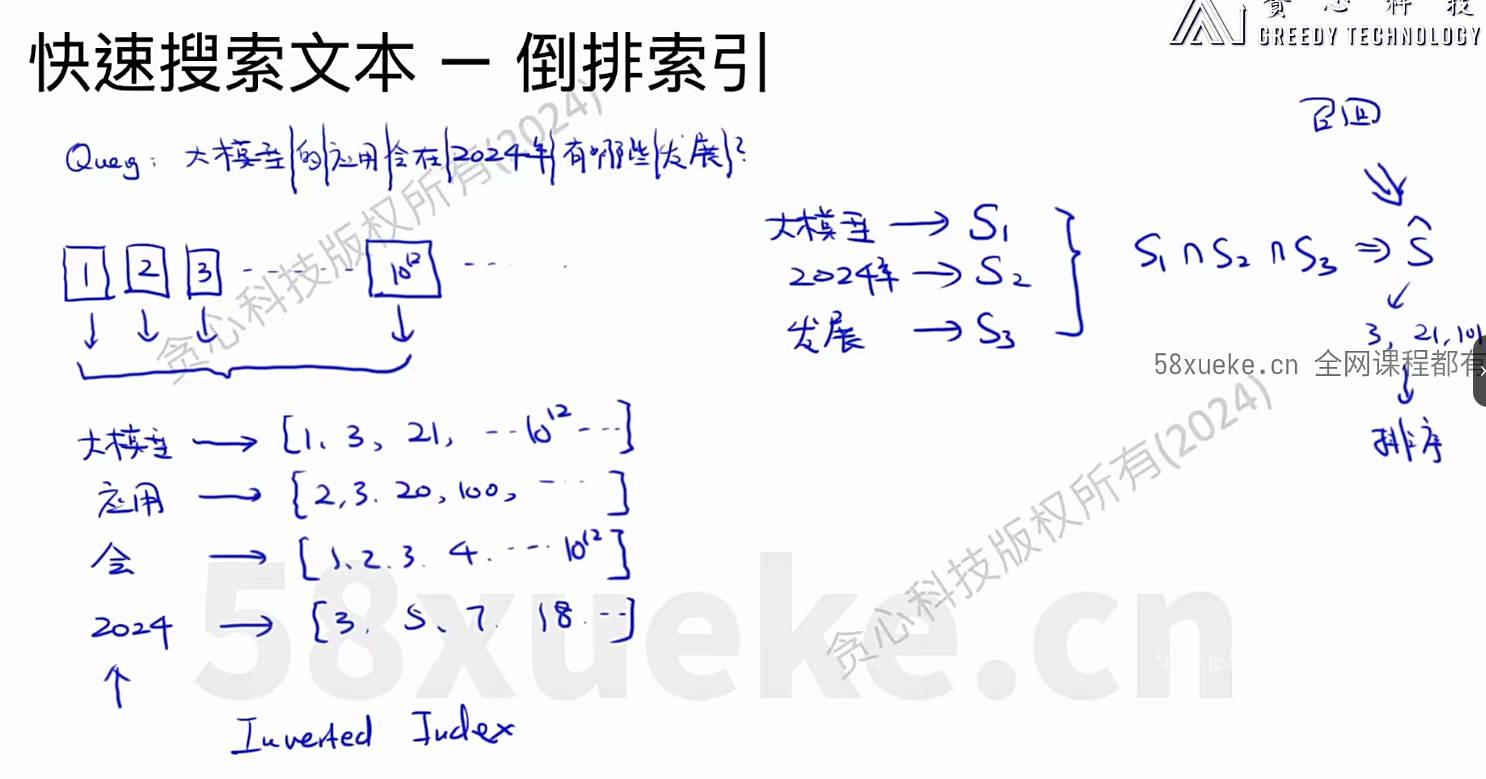 贪心科技
GREEDY TECHNOLOGY
快速搜索文本 — 倒排索引
Query: 大模型|的|应用|会在|2024年|有哪些|发展|?
1 2 3 ------ 10¹² ---
大模型 → [1、3, 21, ---10¹² ---]
应用 → [2,3. 20,100, ---]
会 → [1、2. 3. 4. --- 10¹²]
2024 → [3. 5、7. 18. --]
↑
Inverted Index
召回
大模型 → S₁
2024年 → S₂
发展 → S₃
S₁ ∩ S₂ ∩ S₃ ⇒ Ŝ
3, 21, 101
↓
排序
58xueke.cn 全网课程都有
贪心科技版权所有(2024)
贪心科技版权所有(2024)
58xueke.cn